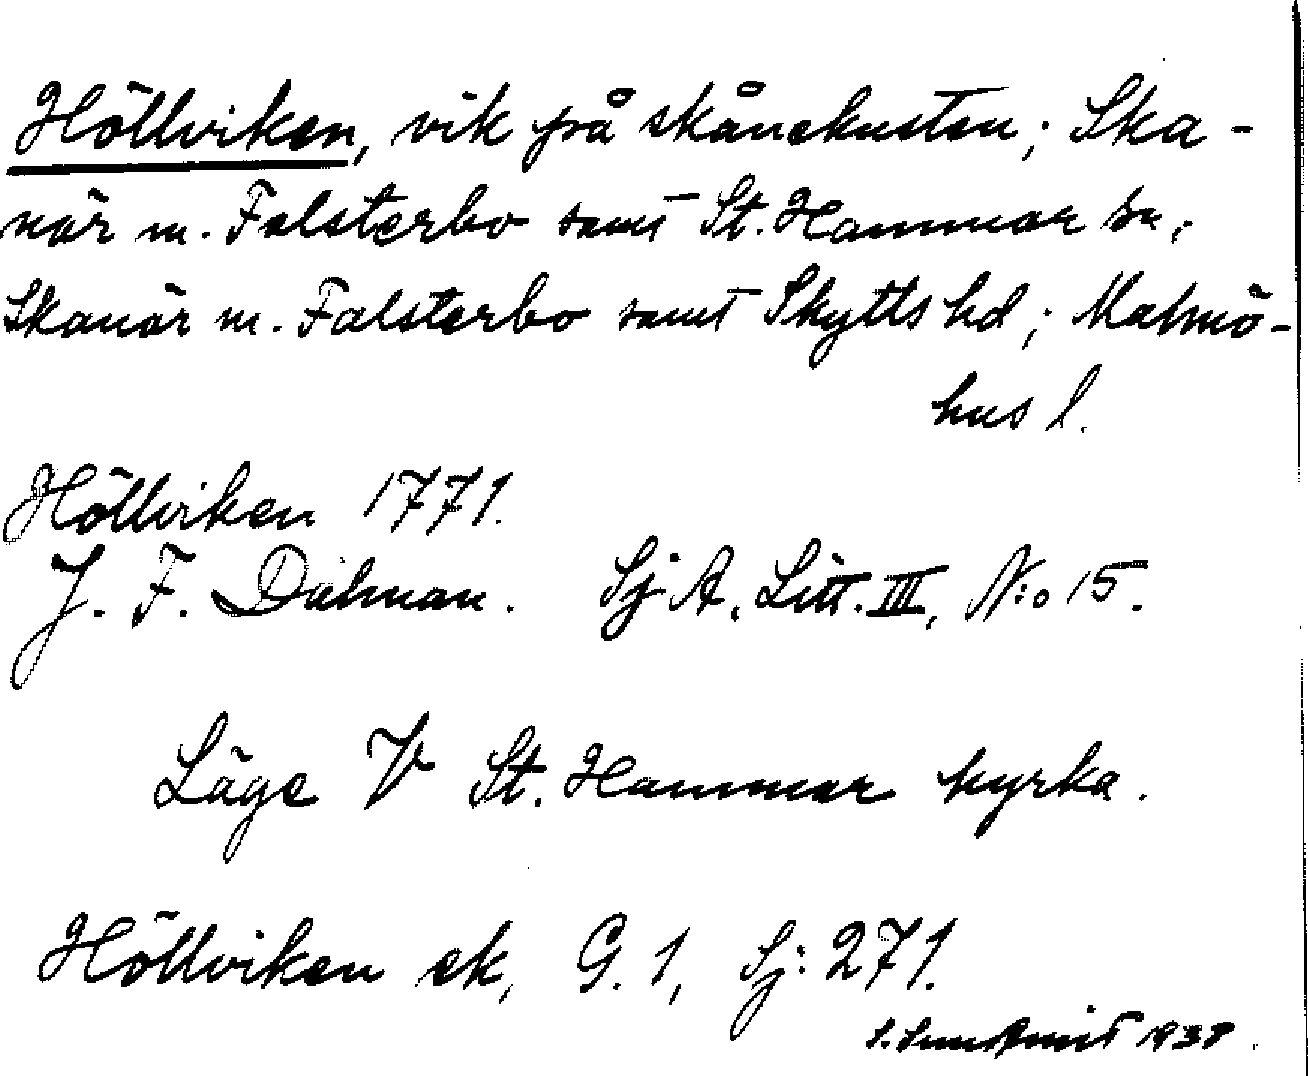 Höllviken, vik på skånekusten; Ska-
nör m. Falsterbo samt St. Hammar sn,
Skanör m. Falsterbo samt Skytts hd; Malmö-
hus l.
Höllviken 1771.
J. F. Dalman. Sj A, Litt. III, N:o 15.
Läge V St. Hammar kyrka.
Höllviken ek, G. 1, Sj: 271.
S. 1938.